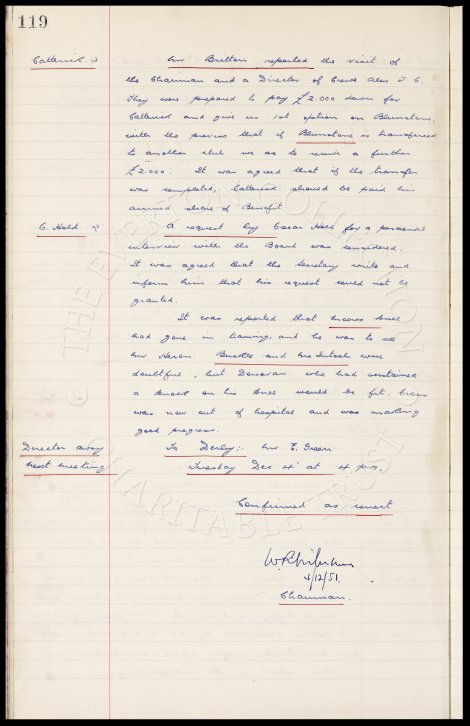 119
Catterick
Mr Britton reported the visit of
the Chairman and a Director of Crewe Alex F.C.
They were prepared to pay £2.000 down for
Catterick and give us 1st option on Blunstone,
with the proviso that if Blunstone is transferred
to another club we are to receive a further
£2.000. It was agreed that if the transfer
was completed, Catterick should be paid his
accrued share of Benefit
O. Hold
A request by Oscar Hold for a personal
interview with the Board was considered.
It was agreed that the Secretary write and
inform him that his request could not be
granted.
It was reported that Moores knee
had gone in training, and he was to see
Mr Heron. Buckle and McIntosh were
doubtful, but Donovan who had sustained
a knock on his knee would be fit.
was now out of hospital and was making
good progress.
Director away
To Derby:- Mr E. Green
Next meeting
Tuesday Dec 4th at 4 p.m.
Confirmed as correct
4/12/51.
Chairman.
THE EVERTON COLLECTION
CHARITABLE TRUST